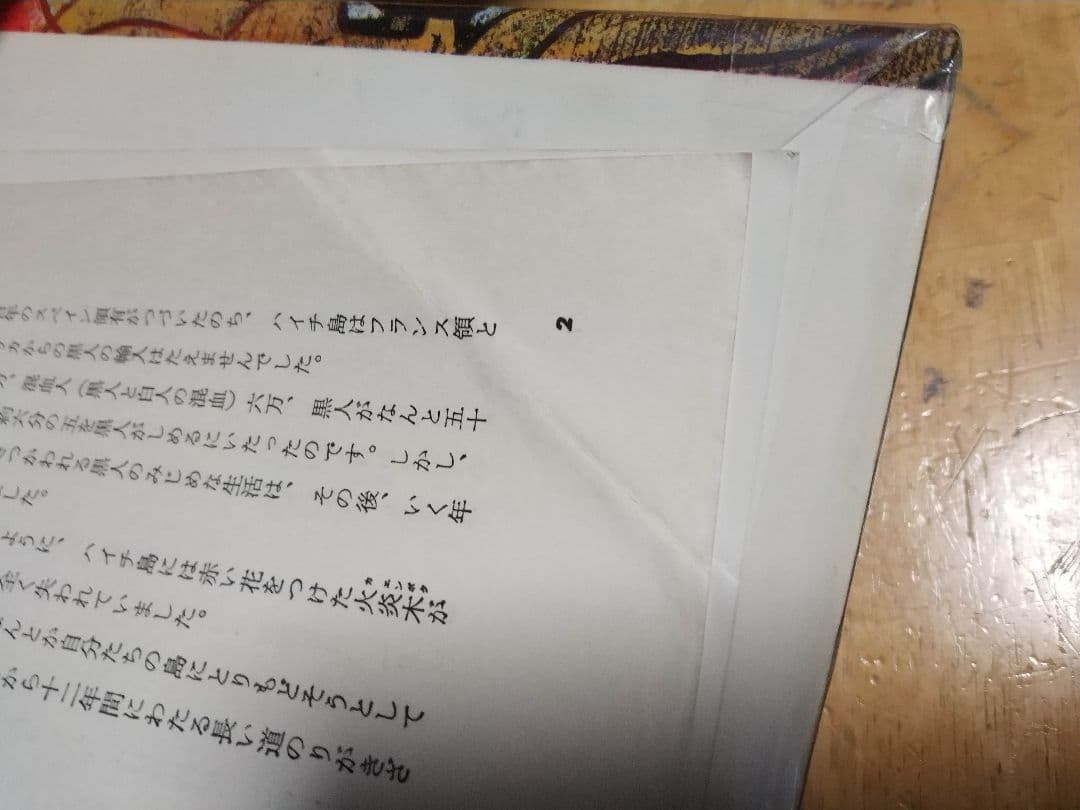 2
年のスペイン領有がつづいたのち、ハイチ島はフランス領と
からの黒人の輸入はたえませんでした。
混血人（黒人と白人の混血）六万、黒人がなんと五十
六分の五を黒人がしめるにいたったのです。しかし、
つかわれる黒人のみじめな生活は、その後、いく年
した。
ように、ハイチ島には赤い花をつけた火炎木が
失われていました。
んとか自分たちの島にとりもどそうとして
から十二年間にわたる長い道のりがきざ